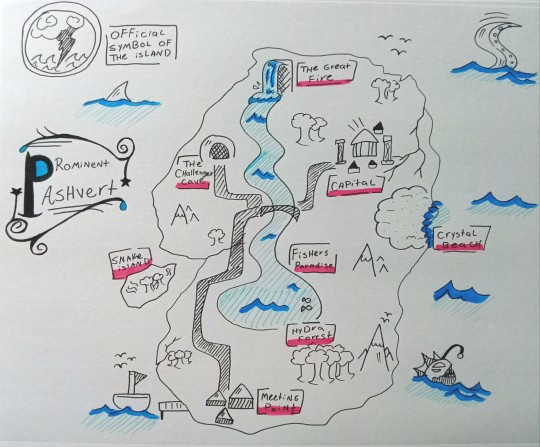 OFFICIAL
SYMBOL OF
THE ISLAND
THE GREAT
FIRE
PROMINENT
PASHVERT
THE
CHALLENGER
CAVE
CAPITAL
CRYSTAL
BEACH
SNAKE
ISLAND
FISHERS
PARADISE
HYDRA
FOREST
MEETING
POINT